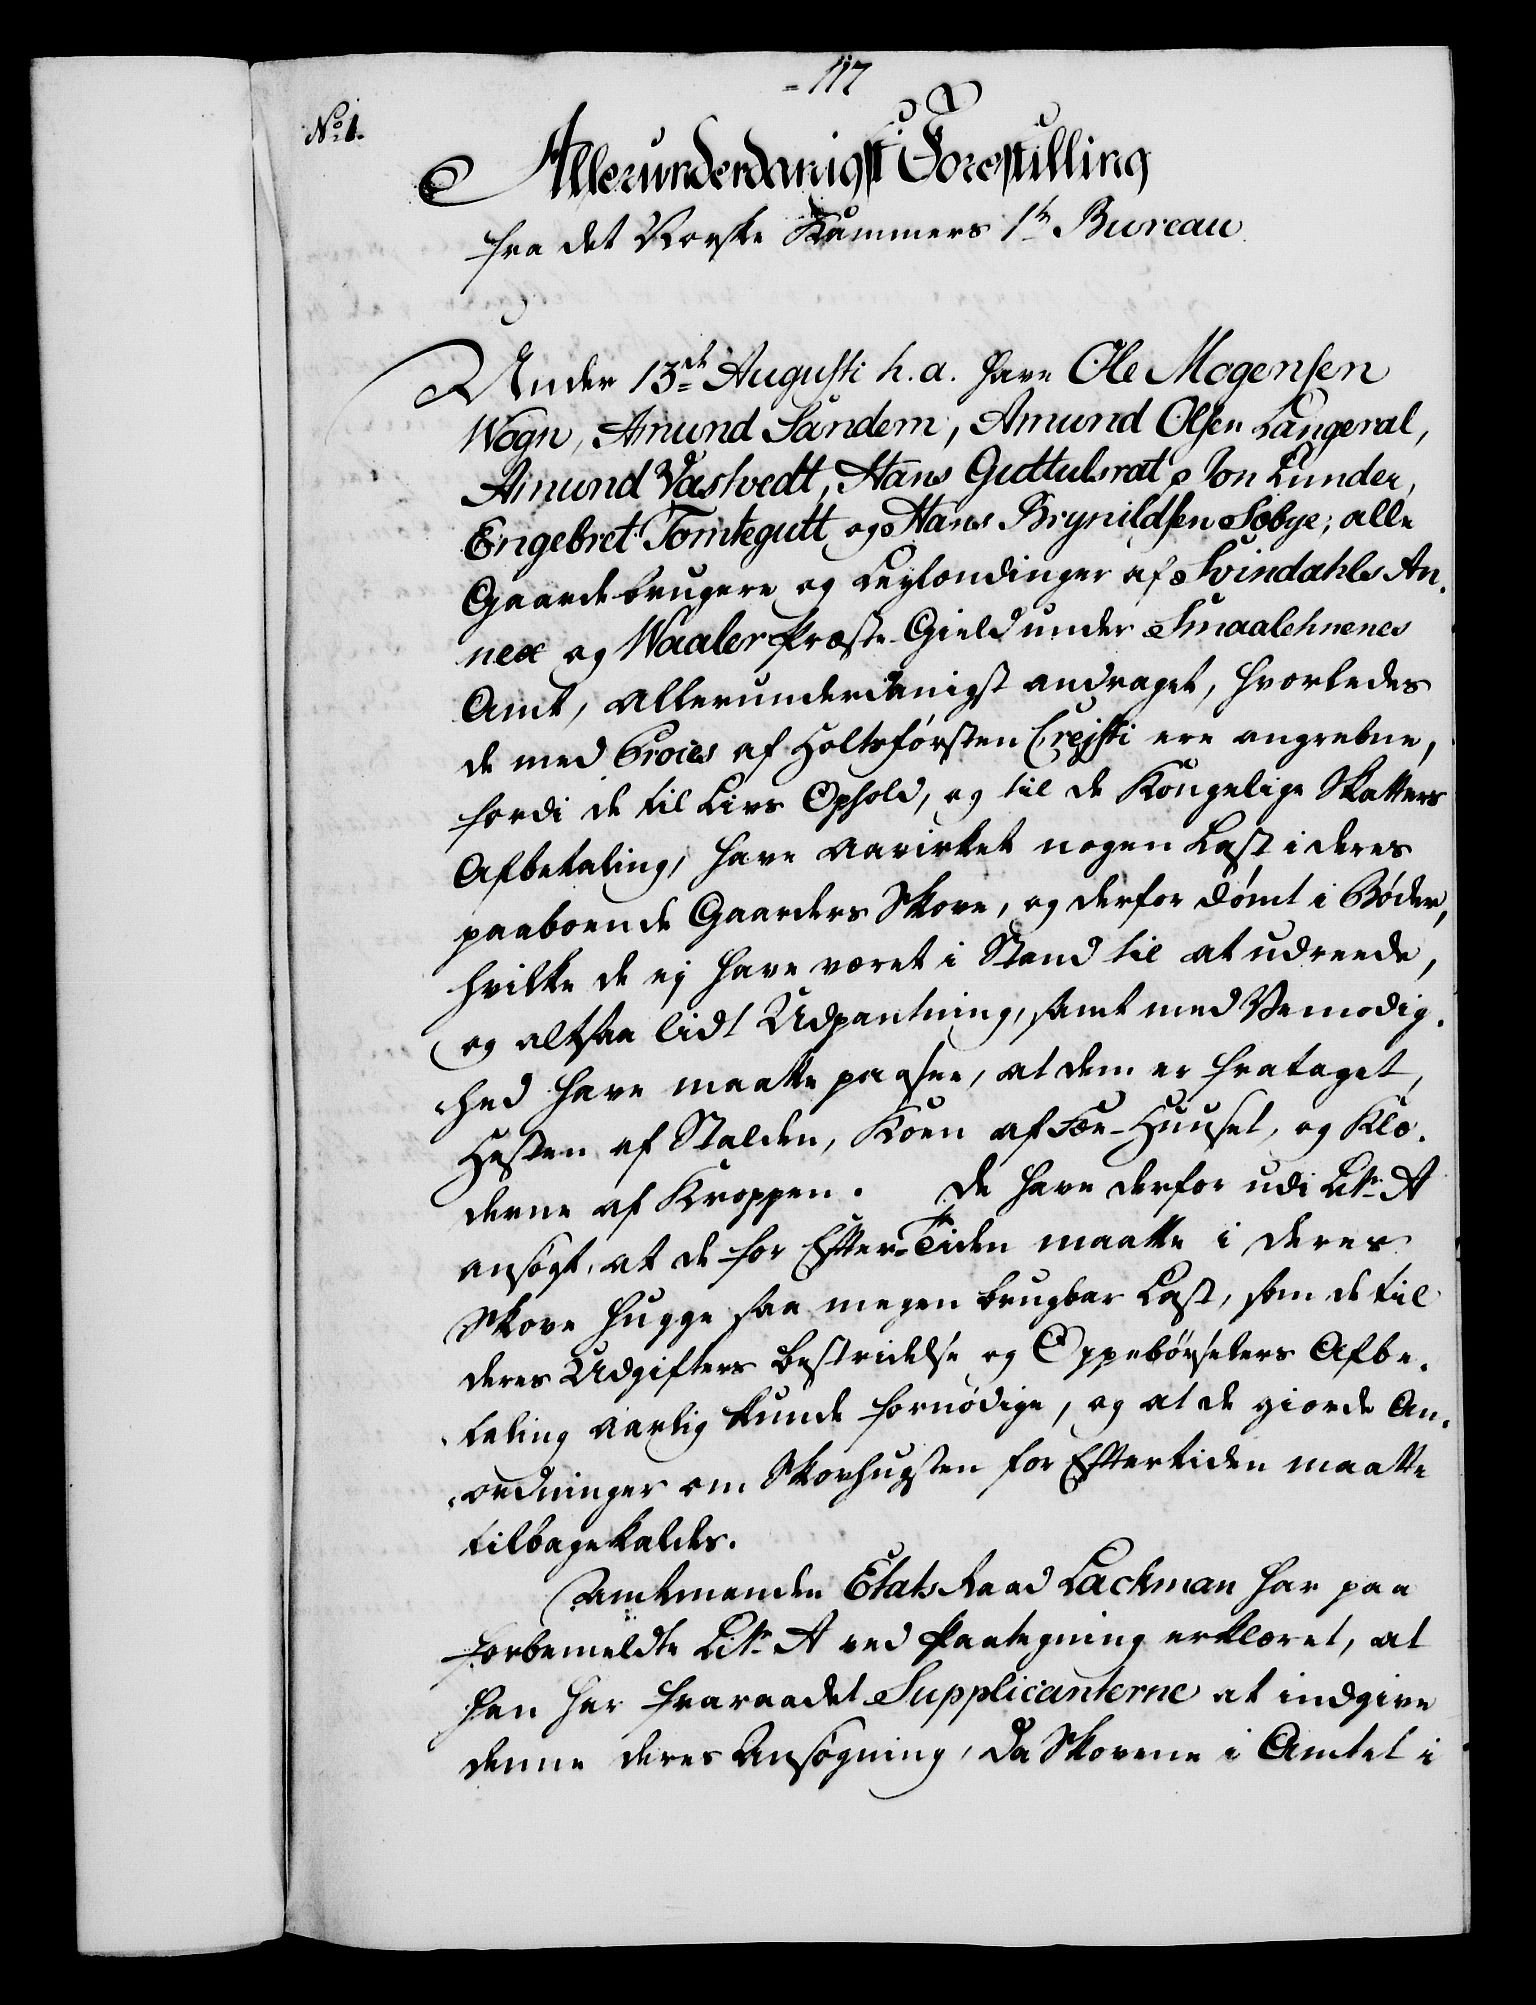 117
No 1.
Allerunderdanigst Forestilling
fra det Norske Kammers 1te Bureau
Under 13de Augusti h. a. have Ole Mogensen
Wogn, Amund Sandem, Amund Olsen Langeral,
Amund Vastvedt, Hans Guttulsrøt, Jon Lunder,
Engebret Tomtegutt og Hans Brynildsen Søbye; alle
Gaardebrugere og Leylændinger af Svindahls An-
nex og Waaler Præste-Gield under Smaalehnenes
Amt, allerunderdanigst andraget, hvorledes
de med Proces af Holtsførsten Crejsti ere angrebne,
fordi de til Livs Ophold, og til de Kongelige Skatters
Afbetaling, have aavirket nogen Last i deres
paaboende Gaarders Skove, og derfor dømt i Bøder,
hvilke de ej have været i Stand til at udreede,
og altsaa lidt Udpantning, samt med Vemodig-
hed have maatte paasee, at dem er frataget,
Hesten af Stalden, Koen af Fæe-Huuset, og Klæ-
derne af Kroppen. De have derfor udi Litr. A
ansøgt, at de for Efter-Tiden maatte i deres
Skove hugge saa megen brugbar Last, som de til
deres Udgifters Bestridelse og Oppebørselers Afbe-
taling aarlig kunde fornødige, og at de giorde An-
ordninger om Skovhugsten for Eftertiden maatte
tilbagekaldes.
Amtmanden Etats Raad Lackman har paa
forbemeldte Litr. A ved Paategning erklæret, at
han har fraraadet Supplicanterne at indgive
denne deres Ansøgning, da Skovene i Amtet i